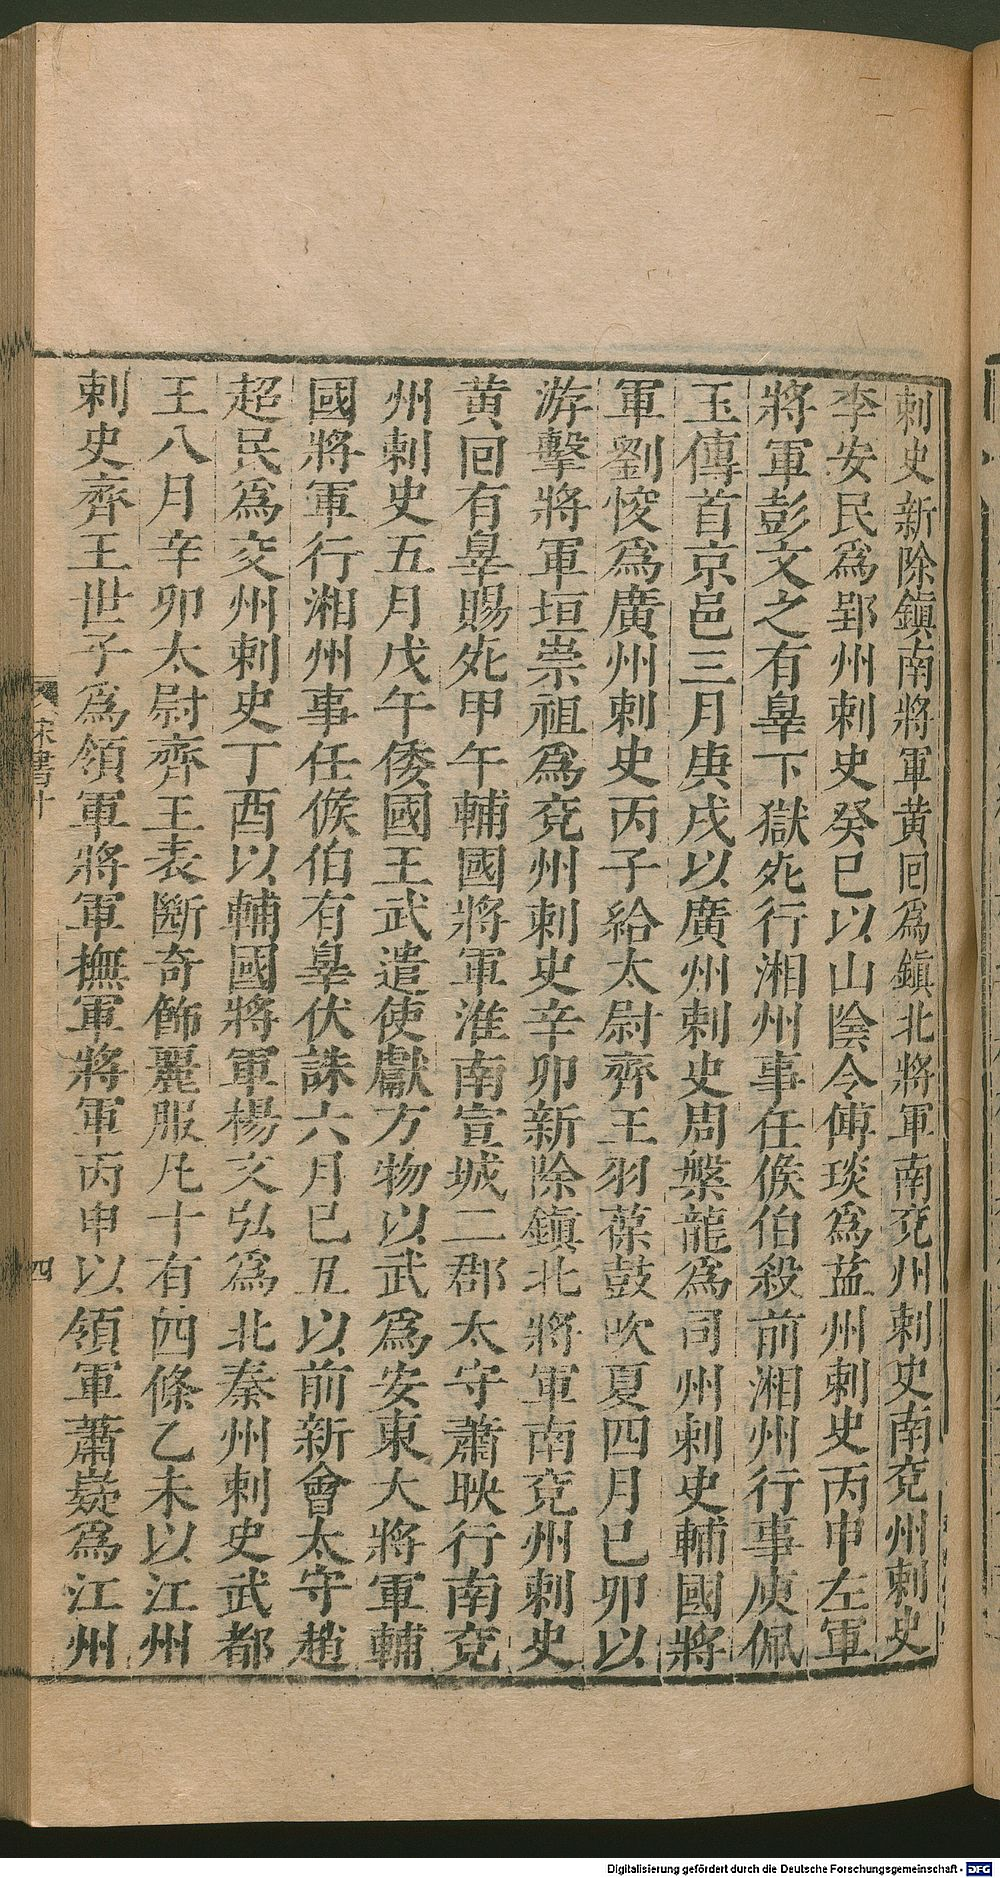 刺史新除鎮南將軍黄回爲鎮北將軍南兖州刺史南兖州刺史
李安民爲郢州刺史癸巳以山陰令傅琰爲益州刺史丙申左軍
將軍彭文之有辠下獄死行湘州事任候伯殺前湘州行事庾佩
玉傳首京邑三月庚戌以廣州刺史周槃龍爲司州刺史輔國將
軍劉悛爲廣州刺史丙子給太尉齊王羽葆鼓吹夏四月已卯以
游擊將軍垣崇祖爲兖州刺史辛卯新除鎮北將軍南兖州刺史
黄回有辠賜死甲午輔國將軍淮南宣城二郡太守蕭映行南兖
州刺史五月戊午倭國王武遣使獻方物以武爲安東大將軍輔
國將軍行湘州事任候伯有辠伏誅六月已丑以前新會太守趙
超民爲交州刺史丁酉以輔國將軍楊文弘爲北秦州刺史武都
王八月辛卯太尉齊王表斷奇飾麗服凡十有四條乙未以江州
刺史齊王世子爲領軍將軍撫軍將軍丙申以領軍蕭嶷爲江州
宋書十
四
Digitalisierung gefördert durch die Deutsche Forschungsgemeinschaft - DFG